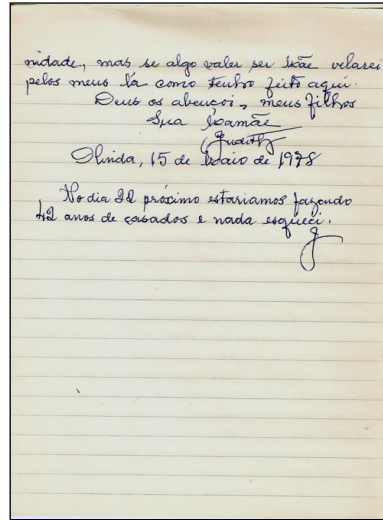 nidade, mas se algo valer ser mãe velarei
pelos meus lá como tenho feito aqui.
Deus os abençoi, meus filhos
Sua Mamãe
Judith
Olinda, 15 de Maio de 1978
No dia 22 próximo estariamos fazendo
42 anos de casados e nada esqueci.
J